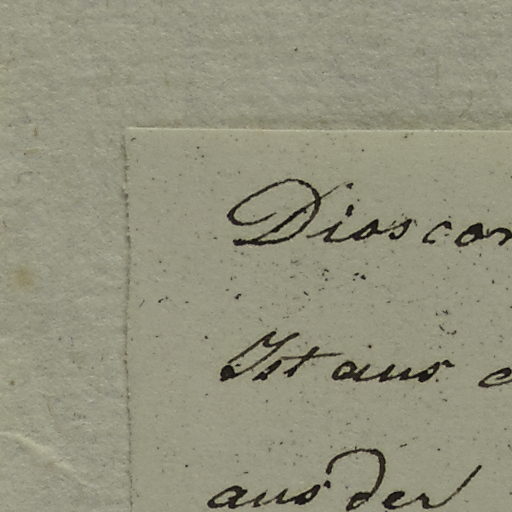 Dioscor
Ist aus
aus der